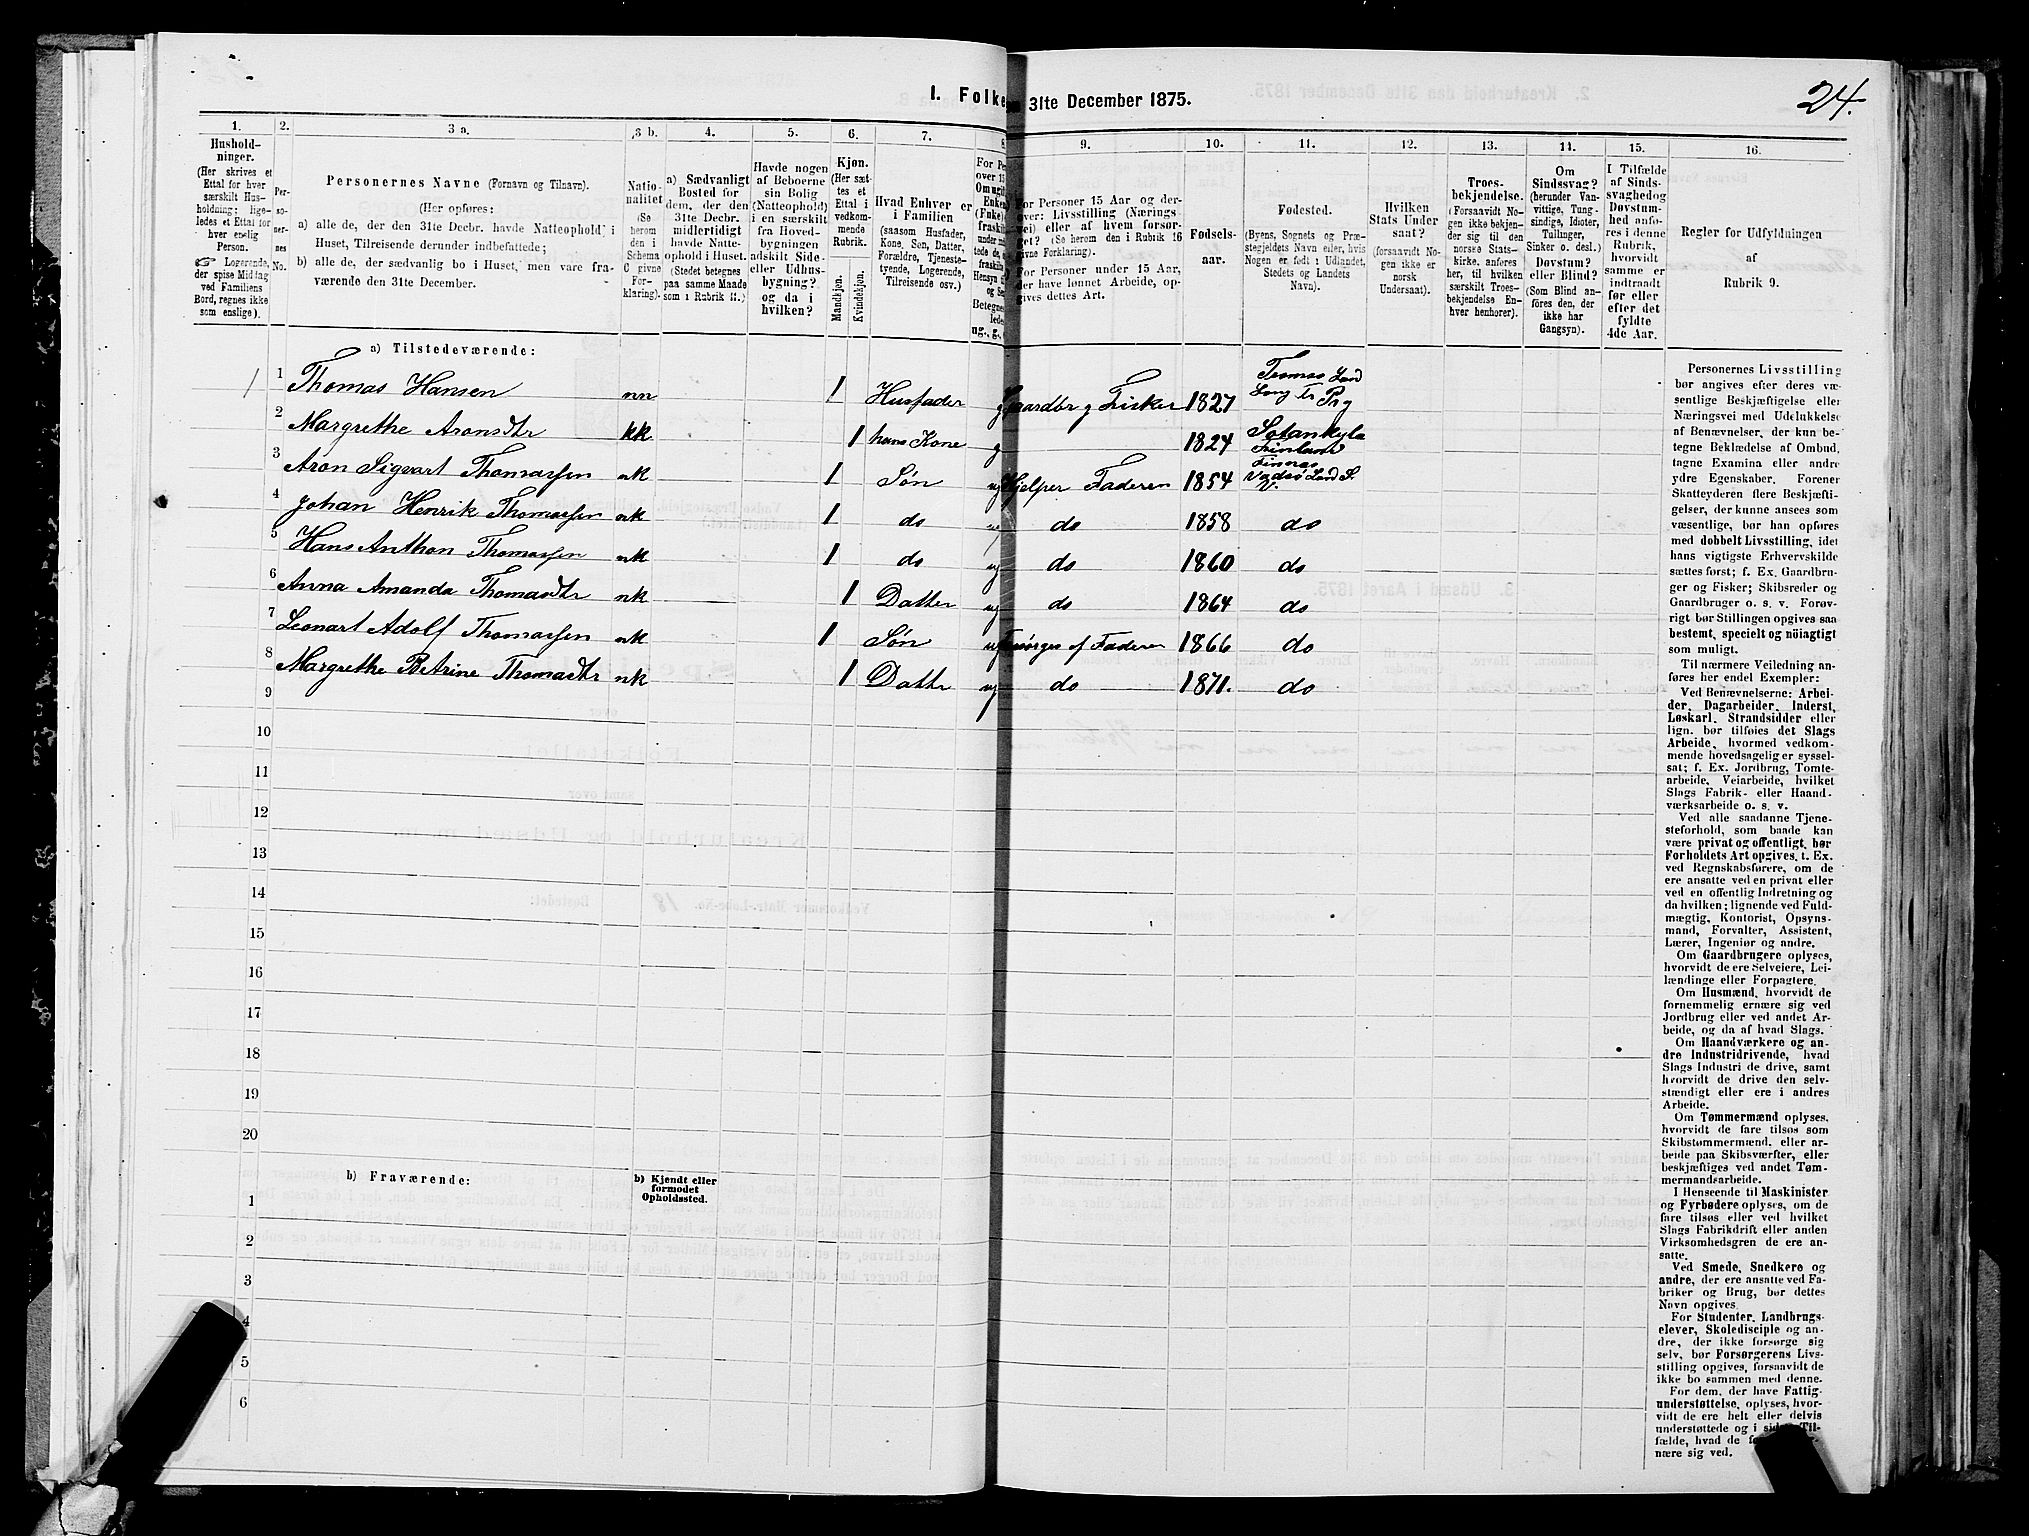 24.
I. Folke 31te December 1875.
1. 2. 3 a. 3 b. 4. 5. 6. 7. 8. 9. 10. 11. 12. 13. 14. 15. 16.
Hushold-
ninger.
(Her skrives et
Ettal for hver
særskilt Hus-
holdning; lige-
ledes et Ettal for
hver enslig
Person.
☞ Logerende,
der spise Middag
ved Familiens
Bord, regnes ikke
som enslige).
Per-
so-
ner-
nes
No.
Personernes Navne (Fornavn og Tilnavn).
(Her opføres:
a) alle de, der den 31te Decbr. havde Natteophold i
Huset, Tilreisende derunder indbefattede;
b) alle de, der sædvanlig bo i Huset, men vare fra-
værende den 31te December.
Natio-
nalitet
(Se
herom
den i
Schema
C givne
For-
klaring).
a) Sædvanligt
Bosted for
dem, der den
31te Decbr.
midlertidigt
havde Natte-
ophold i Huset.
(Stedet betegnes
paa samme Maade
som i Rubrik 11.)
Havde nogen
af Beboerne
sin Bolig
(Natteophold)
i en særskilt
fra Hoved-
bygningen
adskilt Side-
eller Udhus-
bygning?
og da i
hvilken?
Kjøn.
(Her sæt-
tes et
Ettal i
vedkom-
mende
Rubrik.
Mandkjøn.
Kvindekjøn.
Hvad Enhver er
i Familien
(saasom Husfader,
Kone, Søn, Datter,
Forældre, Tjeneste-
tyende, Logerende,
Tilreisende osv.)
For Pe
over 15
Om ugift
Enke
(Fnke)
fraskilt
ug., g.,
For Personer 15 Aar og der-
over: Livsstilling (Nærings
vei) eller af hvem forsør-
get? (Se herom den i Rubrik 16
givne Forklaring).
For Personer under 15 Aar,
der have lønnet Arbeide, op-
gives dettes Art.
Fødsels-
aar.
Fødested.
(Byens, Sognets og Præ-
stegjeldets Navn eller, hvis
Nogen er født i Udlandet,
Stedets og Landets
Navn).
Hvilken
Stats Under
saat?
(forsaavidt No-
gen ikke er
norsk
Undersaat).
Troes-
bekjendelse.
(Forsaavidt No-
gen ikke bekjen-
der sig til den
norske Stats-
kirke, anføres
her, til hvilken
særskilt Troes-
bekjendelse En-
hver henhører).
Om
Sindssvag?
(herunder Van-
vittige, Tung-
sindige, Idioter,
Tullinger,
Sinker o. desl.)
Døvstum?
eller Blind?
(Som Blind an-
føres den, der
ikke har
Gangsyn).
I Tilfælde
af Sinds-
svaghed og
Døvstum-
hed anfø-
res i denne
Rubrik,
hvorvidt
samme er
indtraadt
før eller
efter det
fyldte
4de Aar.
Regler for Udfyldningen
af
Rubrik 9.
a) Tilstedeværende:
1 1 Thomas Hansen nn 1 Husfader g Gaardbr g Fisker 1827 Tromsø Land Sogn Tr Prg
2 Margrethe Aronsdtr kk 1 hans Kone g 1824 Sotankyla Finland
3 Aron Sigvart Thomassen nk 1 Søn ug Hjelper Faderen 1854 Vadsø Land S. V.
4 Johan Henrik Thomassen nk 1 do ug do 1858 do
5 Hans Anthon Thomassen nk 1 do ug do 1860 do
6 Anna Amanda Thomasdtr nk 1 Datter ug do 1864 do
7 Leonart Adolf Thomassen nk 1 Søn ug Forsørges af Faderen 1866 do
8 Margrethe Petrine Thomasdtr nk 1 Dattr ug do 1871. do
9
10
11
12
13
14
15
16
17
18
19
20
b) Fraværende:
b) Kjendt eller
formodet
Opholdssted.
1
2
3
4
5
6
Personernes Livsstilling
bør angives efter deres væ-
sentlige Beskjæftigelse eller
Næringsvei med Udelukkelse
af Benævnelser, der kun be-
tegne Beklædelse af Ombud,
tagne Examina eller andre
ydre Egenskaber. Forener
Skatteyderen flere Beskjæfti-
gelser, der kunne ansees som
væsentlige, bør han opføres
med dobbelt Livsstilling, idet
hans vigtigste Erhvervskilde
sættes først; f. Ex. Gaardbru-
ger og Fisker; Skibsreder og
Gaardbruger o. s. v. Forøv-
rigt bør Stillingen opgives saa
bestemt, specielt og nöiagtigt
som muligt.
Til nærmere Veiledning an-
føres her endel Exempler:
Ved Benævnelserne: Arbei-
der, Dagarbeider, Inderst,
Løskarl, Strandsidder eller
lign. bør tilføies det Slags
Arbeide, hvormed vedkom-
mende hovedsagelig er syssel-
sat; f. Ex. Jordbrug, Tomte-
arbeide, Veiarbeide, hvilket
Slags Fabrik- eller Haand-
værksarbeide o. s. v.
Ved alle saadanne Tjene-
steforhold, som baade kan
være privat og offentligt, bør
Forholdets Art opgives, t. Ex.
ved Regnskabsførere, om de
ere ansatte ved en privat eller
ved en offentlig Indretning og
da hvilken; lignende ved Fuld-
mægtig, Kontorist, Opsyns-
mand, Forvalter, Assistent,
Lærer, Ingeniør og andre.
Om Gaardbrugere oplyses,
hvorvidt de ere Selveiere, Lei-
lændinge eller Forpagtere.
Om Husmænd, hvorvidt de
fornemmelig ernære sig ved
Jordbrug eller ved andet Ar-
beide, og da af hvad Slags.
Om Haandværkere og an-
dre Industridrivende, hvad
Slags Industri de drive, samt
hvorvidt de drive den selv-
stændigt eller ere i andres
Arbeide.
Om Tømmermænd oplyses,
hvorvidt de fare tilsøs som
Skibstømmermænd, eller ar-
beide paa Skibsværfter, eller
beskjæftiges ved andet Tøm-
mermandsarbeide.
I Henseende til Maskinister
og Fyrbødere oplyses, om de
fare tilsøs eller ved hvilket
Slags Fabrikdrift eller anden
Virksomhedsgren de ere an-
satte.
Ved Smede, Snedkere og
andre, der ere ansatte ved Fa-
briker og Brug, bør dettes
Navn opgives.
For Studenter, Landbrugs-
elever, Skoledisciple og an-
dre, der ikke forsørge sig
selv, bør Forsørgerens Livs-
stilling opgives, forsaavidt de
ikke bo sammen med denne.
For dem, der have Fattig-
understøttelse, oplyses, hvor-
vidt de ere helt eller delvis
understøttede og i sidste Til-
fælde, hvad de
nære sig ved.